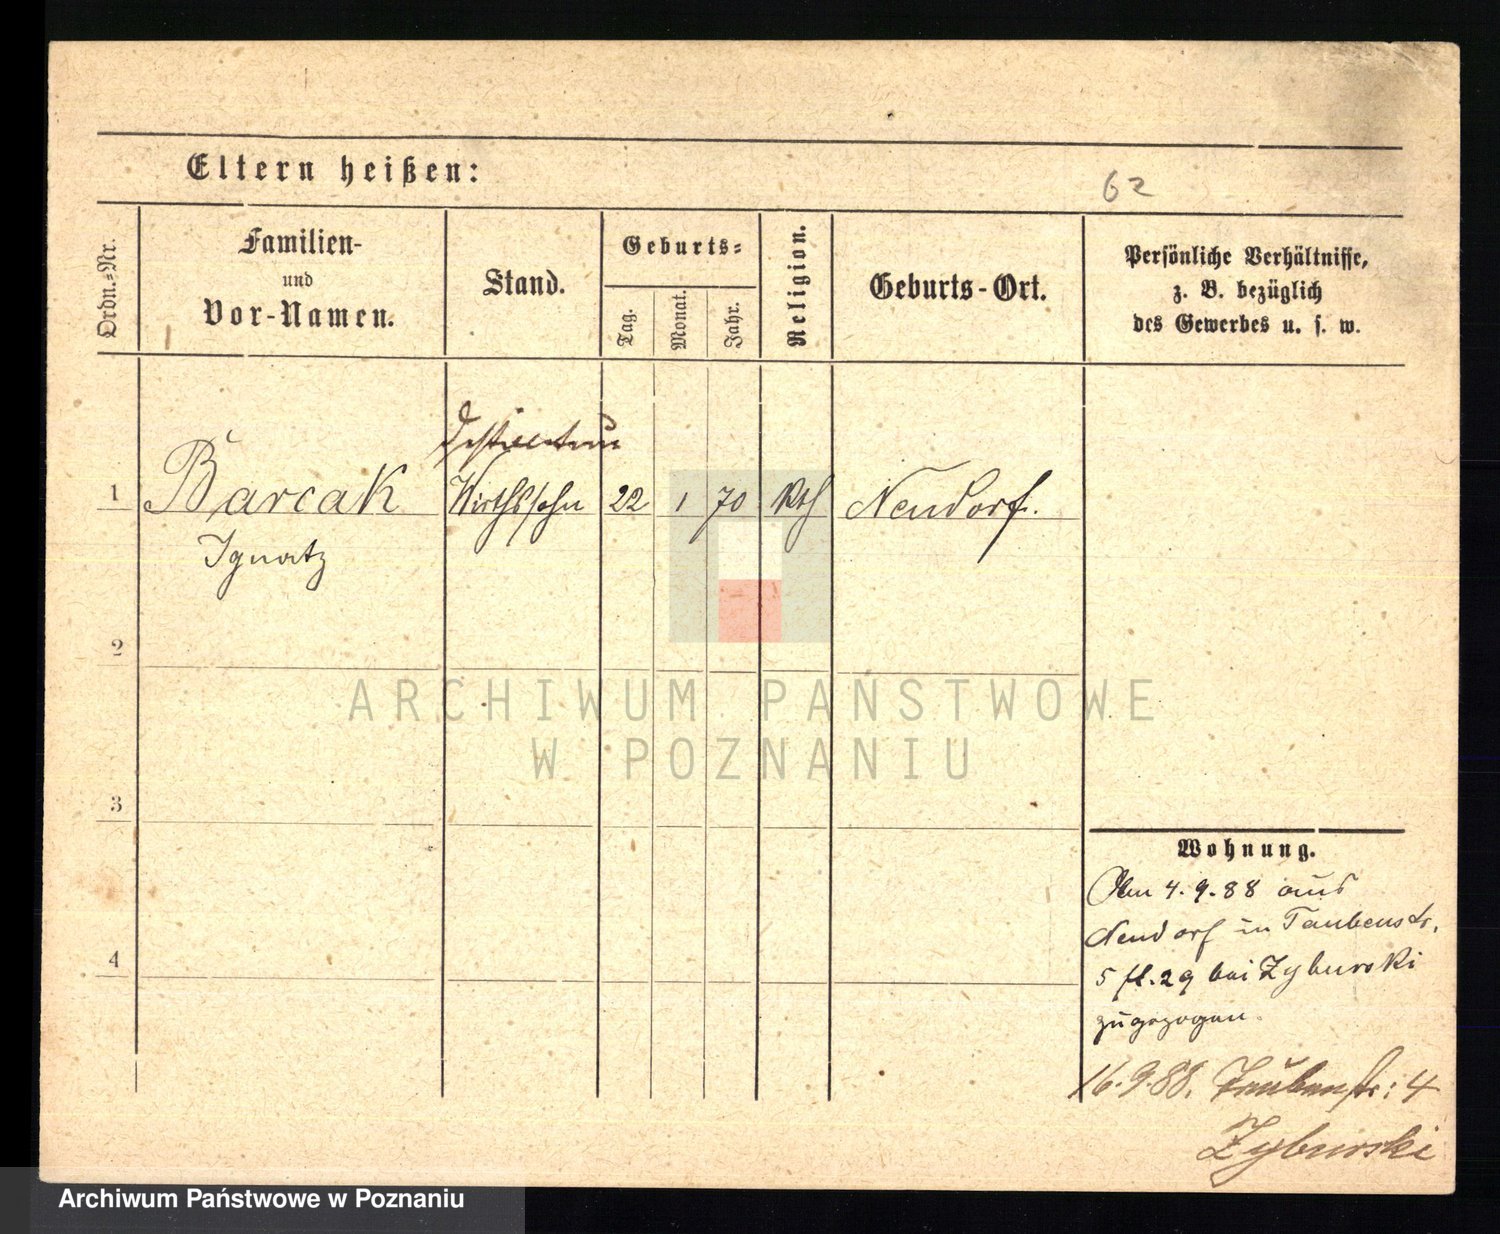 Eltern heißen:
62
Ordn.=Nr.
Familien-
und
Vor-Namen.
Stand.
Geburts=
Tag.
Monat.
Jahr.
Religion.
Geburts-Ort.
Persönliche Verhältnisse,
z. B. bezüglich
des Gewerbes u. s. w.
1 Barcak Wirthssohn 22 1 70 Kth Neudorf.
Ignatz
2
3
4
Wohnung.
4.9.88 aus
Neudorf in Taubenstr.
5 fl. 29 bei Zyburski
zugezogen.
16.9.88. Taubenstr: 4
Zyburski
ARCHIWUM PAŃSTWOWE
W POZNANIU
Archiwum Państwowe w Poznaniu